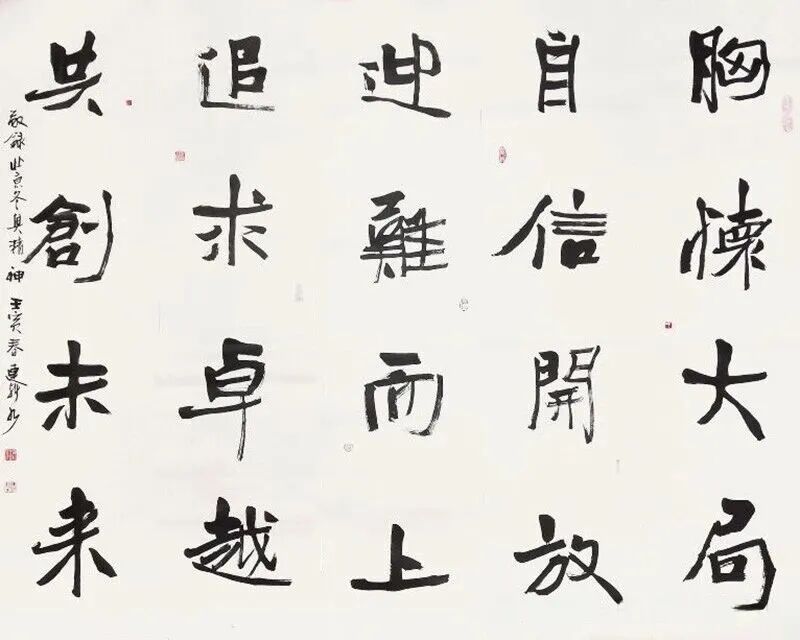 胸懷大局
自信開放
迎難而上
追求卓越
共創未来
敬録北京冬奥精神 壬寅春